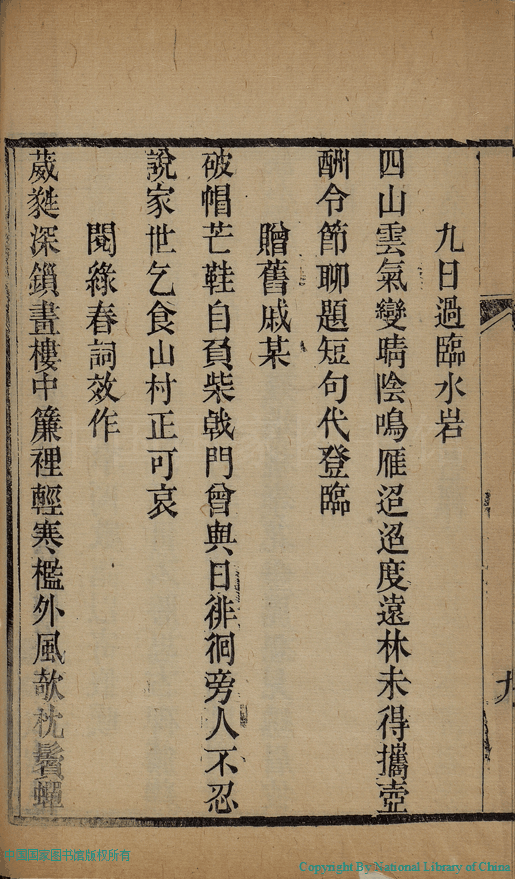 九日過臨水岩
四山雲氣變晴陰鳴雁迢迢度遠林未得攜壺
酬令節聊題短句代登臨
贈舊戚某
破帽芒鞋自負柴戟門曾與日徘徊旁人不忍
說家世乞食山村正可哀
閱綠春詞效作
葳蕤深鎖畫樓中簾裡輕寒檻外風欹枕鬢蟬
九
中国国家图书馆版权所有
Copyright By National Library of China